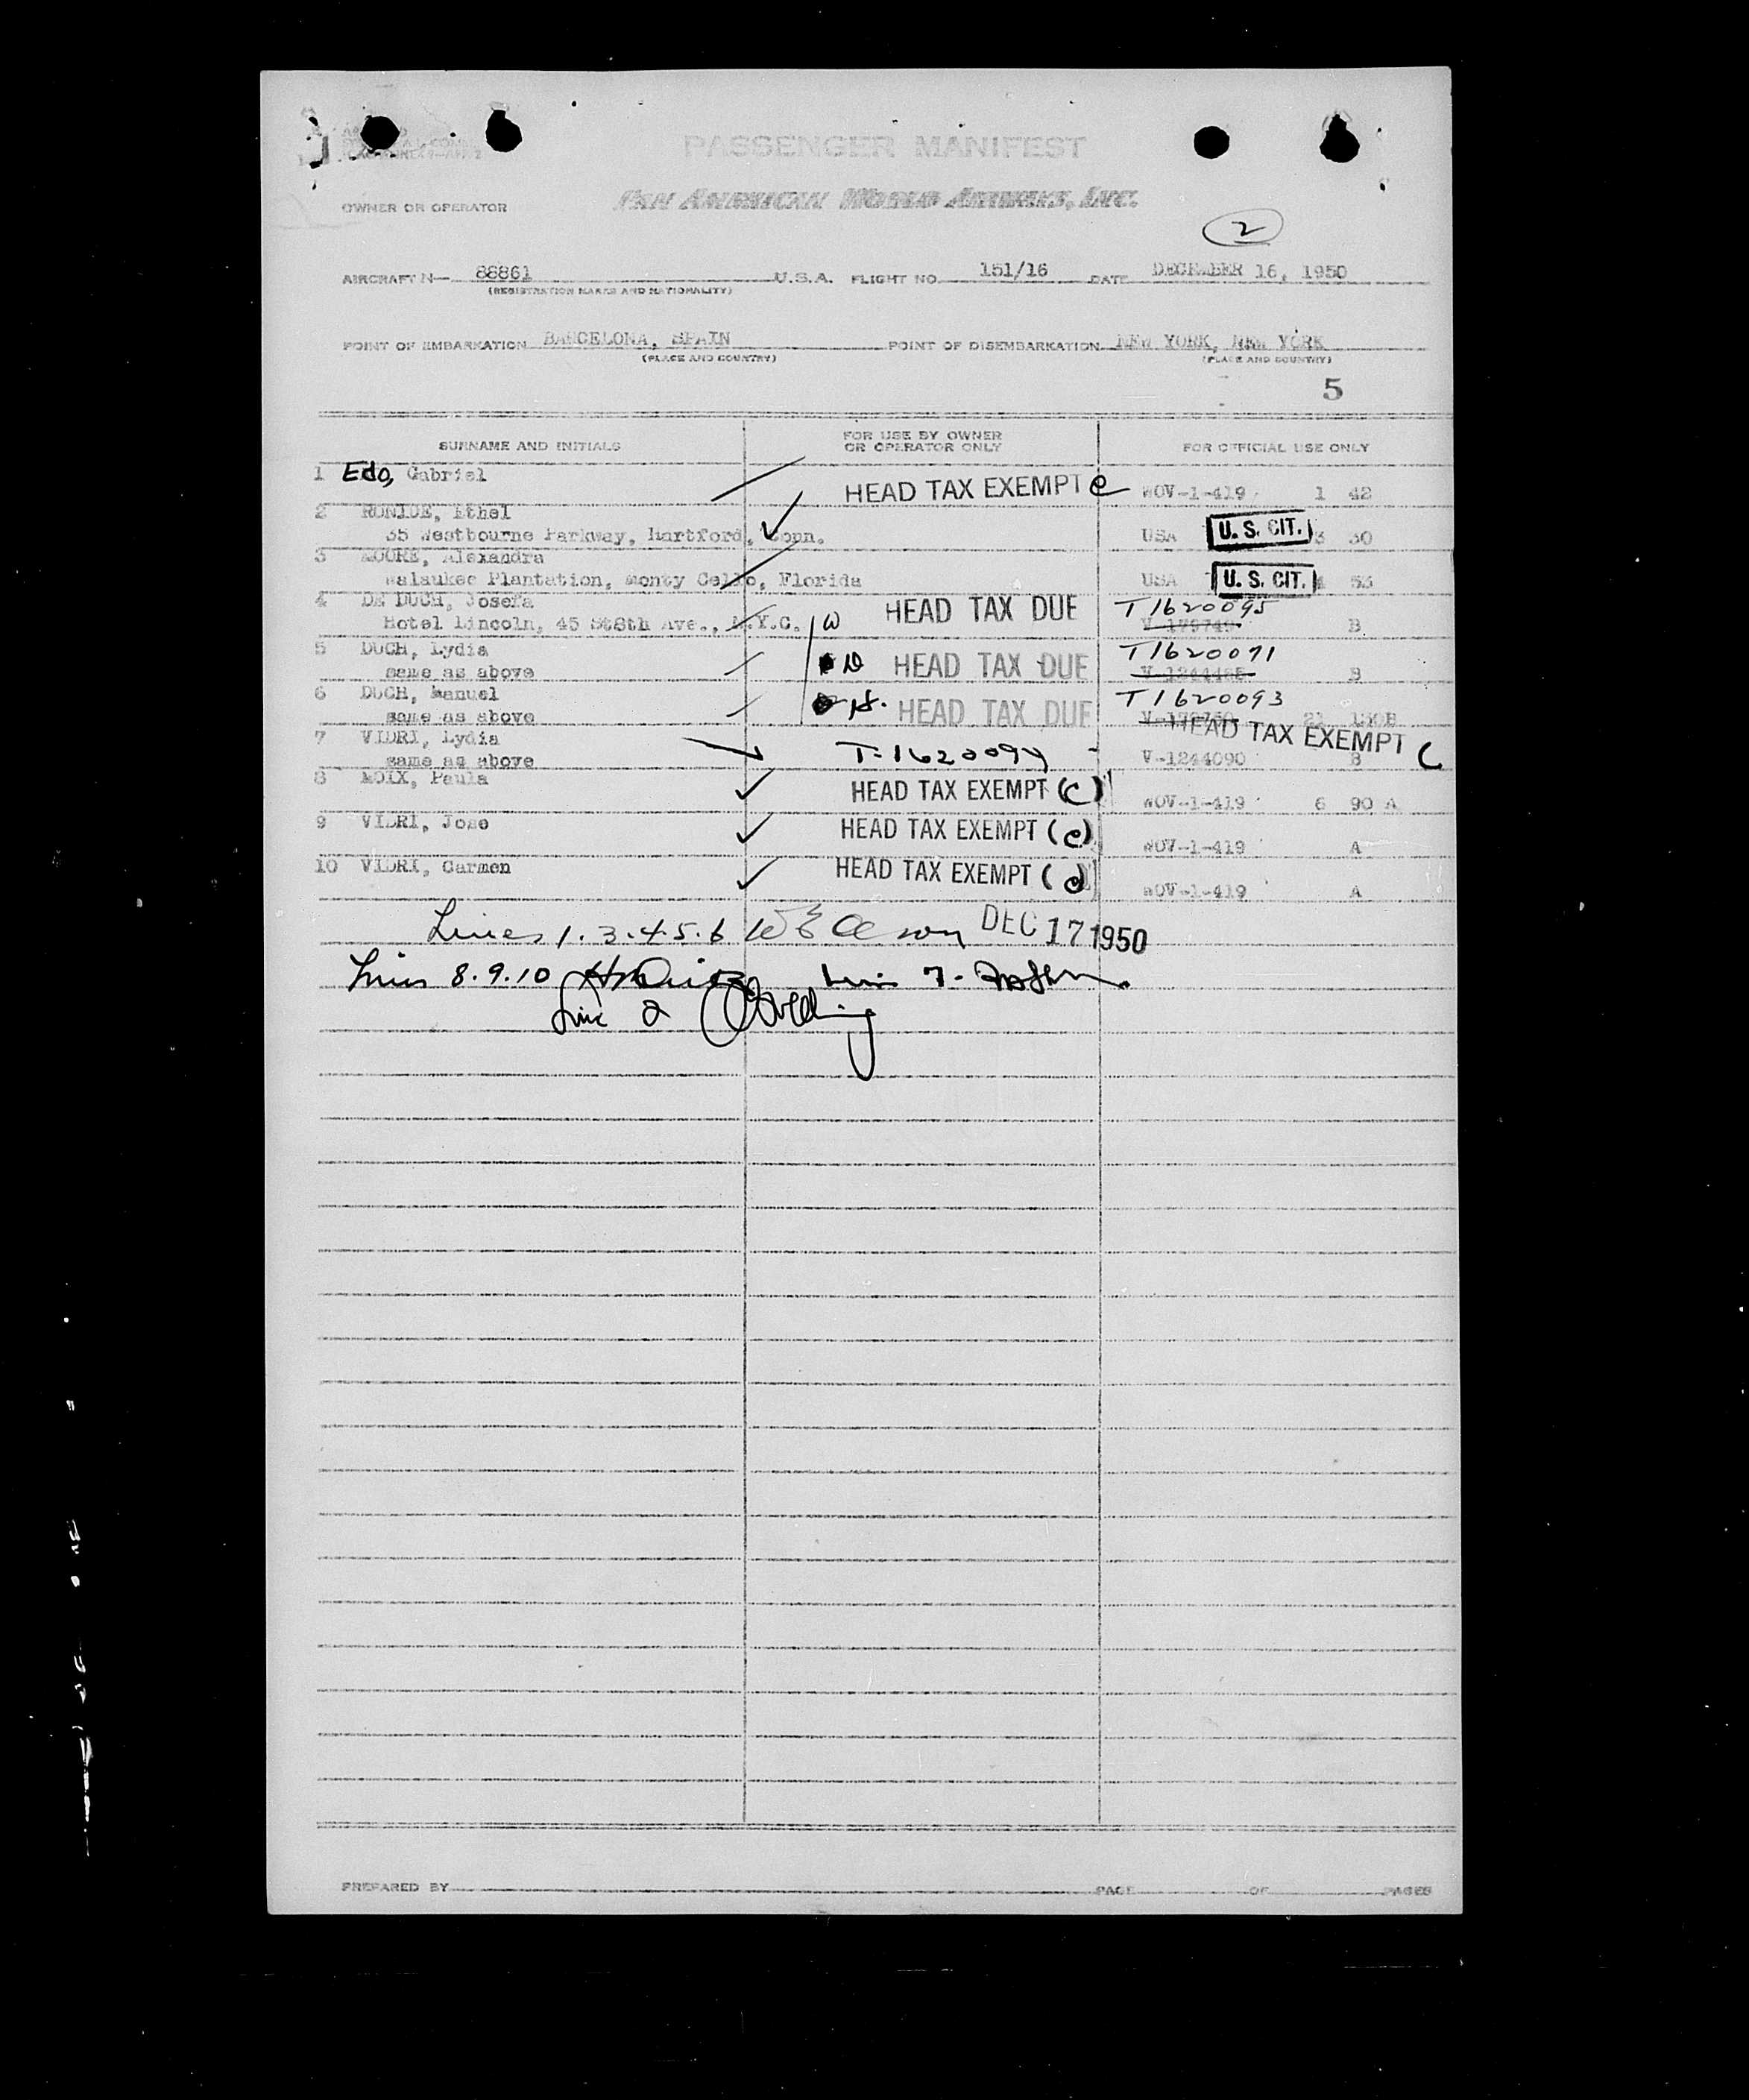 PASSENGER MANIFEST
PAN AMERICAN WORLD AIRWAYS, INC.
OWNER OR OPERATOR
2
AIRCRAFT N— 88861 U.S.A. FLIGHT NO. 151/16 DATE DECEMBER 16, 1950
(REGISTRATION MARKS AND NATIONALITY)
POINT OF EMBARKATION BARCELONA, SPAIN POINT OF DISEMBARKATION NEW YORK, NEW YORK
(PLACE AND COUNTRY) (PLACE AND COUNTRY)
5
SURNAME AND INITIALS FOR USE BY OWNER OR OPERATOR ONLY FOR OFFICIAL USE ONLY
1 Edo, Gabriel
HEAD TAX EXEMPT e WOV-1-419 1 42
2 Ethel
35 Westbourne Parkway, Hartford, Conn. USA U. S. CIT. 3 30
3 MOORE, Alexandra
Plantation, Monty Cello, Florida USA U. S. CIT. 53
4 DE DUCH, Josefa HEAD TAX DUE T1620095
Hotel Lincoln, 45 St8th Ave., N.Y.C. W V-179749 B
5 DUCH, Lydia T1620091
same as above HEAD TAX DUE B
6 DUCH, Manuel T1620093
same as above HEAD TAX DUE 21
HEAD TAX EXEMPT C
7 VIDRI, Lydia
same as above T-1620094 V-1244090 B
8 MOIX, Paula HEAD TAX EXEMPT (C)
WOV-1-419 6 90 A
9 VIDRI, Jose HEAD TAX EXEMPT (e)
WOV-1-419 A
10 VIDRI, Carmen HEAD TAX EXEMPT (d)
WOV-1-419 A
Lines 1.3.4.5.6 DEC 17 1950
Lines 8.9.10 7-
Line 2
PREPARED BY PAGE OF PAGES